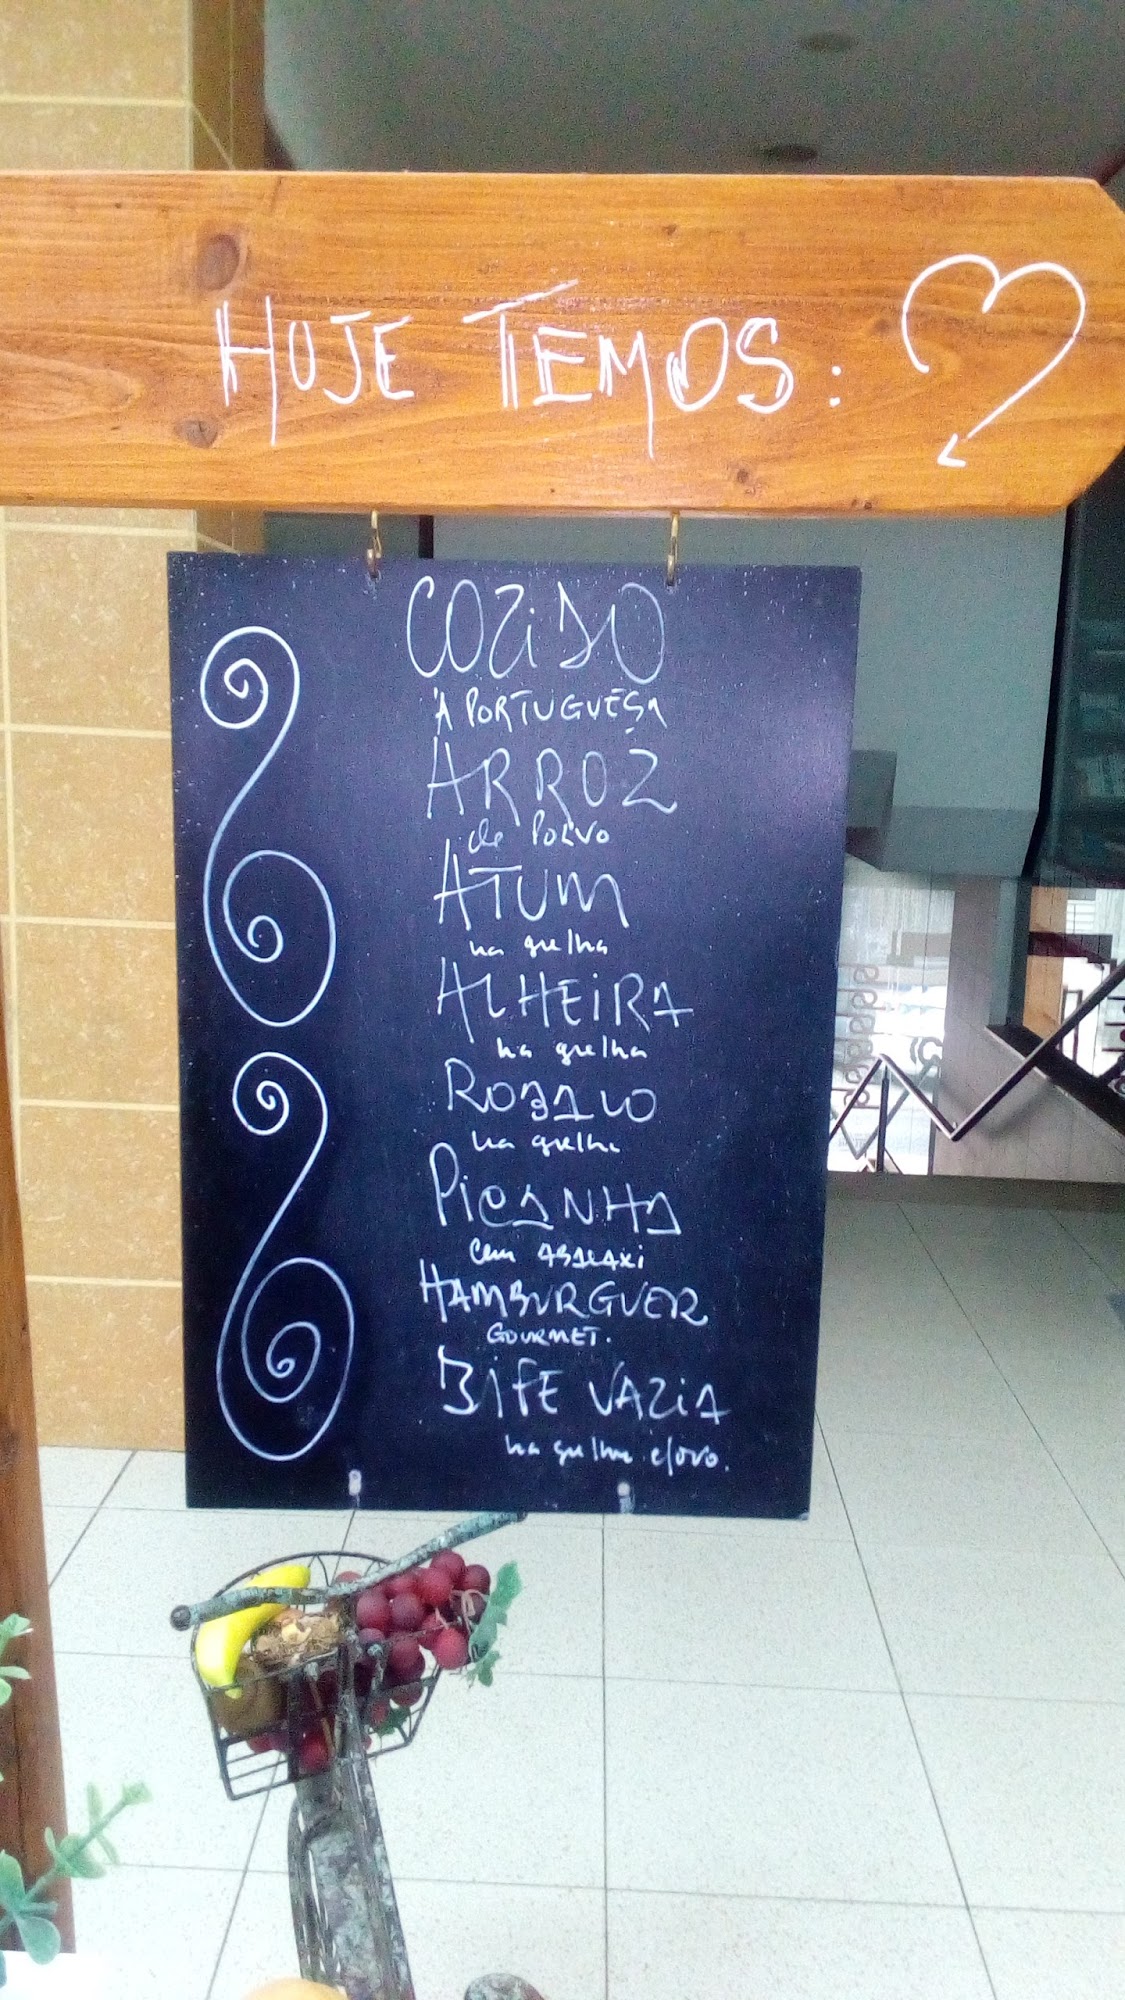 HOJE TEMOS:
COZIDO
À PORTUGUESA
ARROZ
de POLVO
ATUM
na grelha
ALHEIRA
na grelha
ROBALO
na grelha
PICANHA
com ABACAXI
HAMBURGUER
GOURMET.
BIFE VAZIA
na grelha c/ovo.